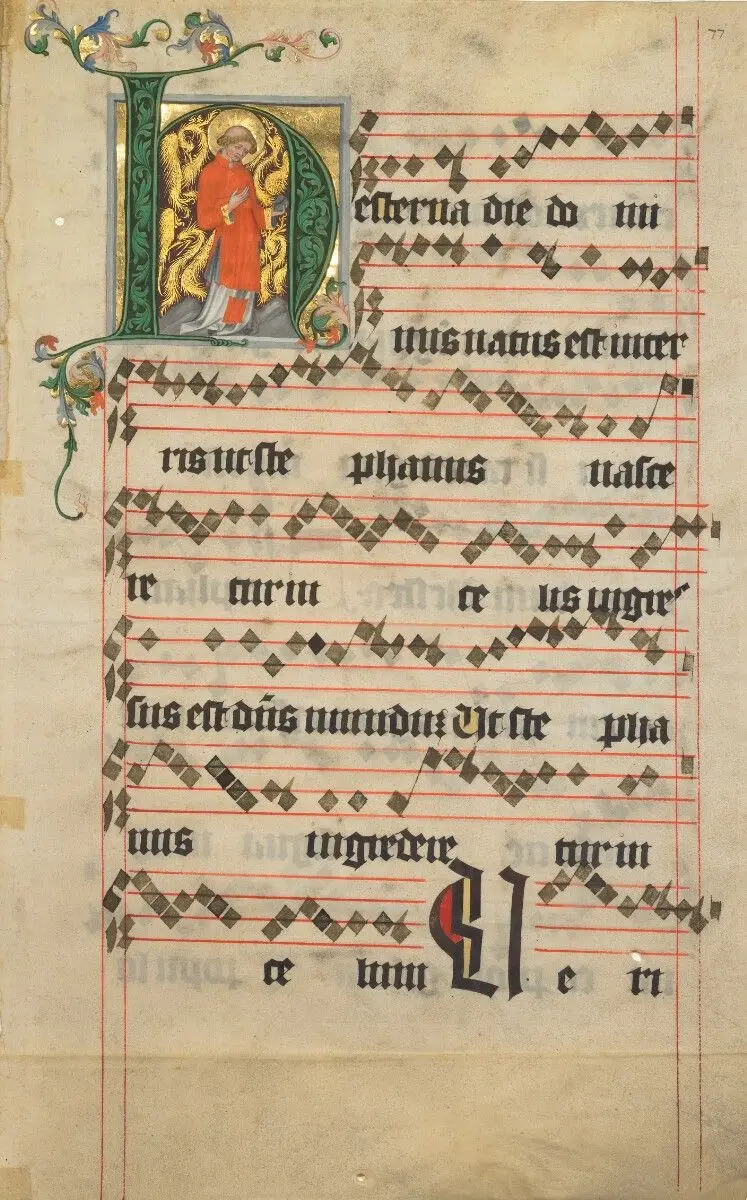 77
Hesterna die do mi
nus natus est in ter
ris ut ste phanus nasce
re tur in ce lis ingre
sus est dñs mundū Ut ste pha
nus ingredere tur in
ce lum U e ri